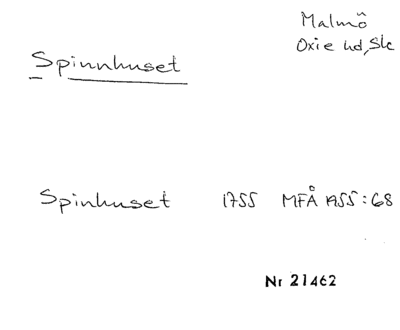 Malmö
Oxie hd, Sk
Spinnhuset
Spinhuset 1755 MFÅ 1955:68
Nr 21462